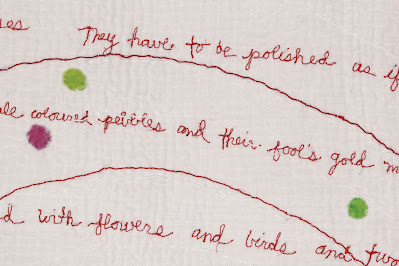 They have to be polished as if
ale coloured pebbles and their fool's gold m
d with flowers and birds and two